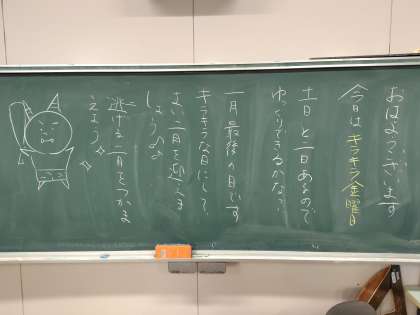 おはようございます
今日は キラキラ金曜日
土日と二日あるので
ゆっくりできるかな?
一月最後の日です
キラキラな日にして、
よい二月を迎えま
しょう♪
逃げる二月をつかま
えよう